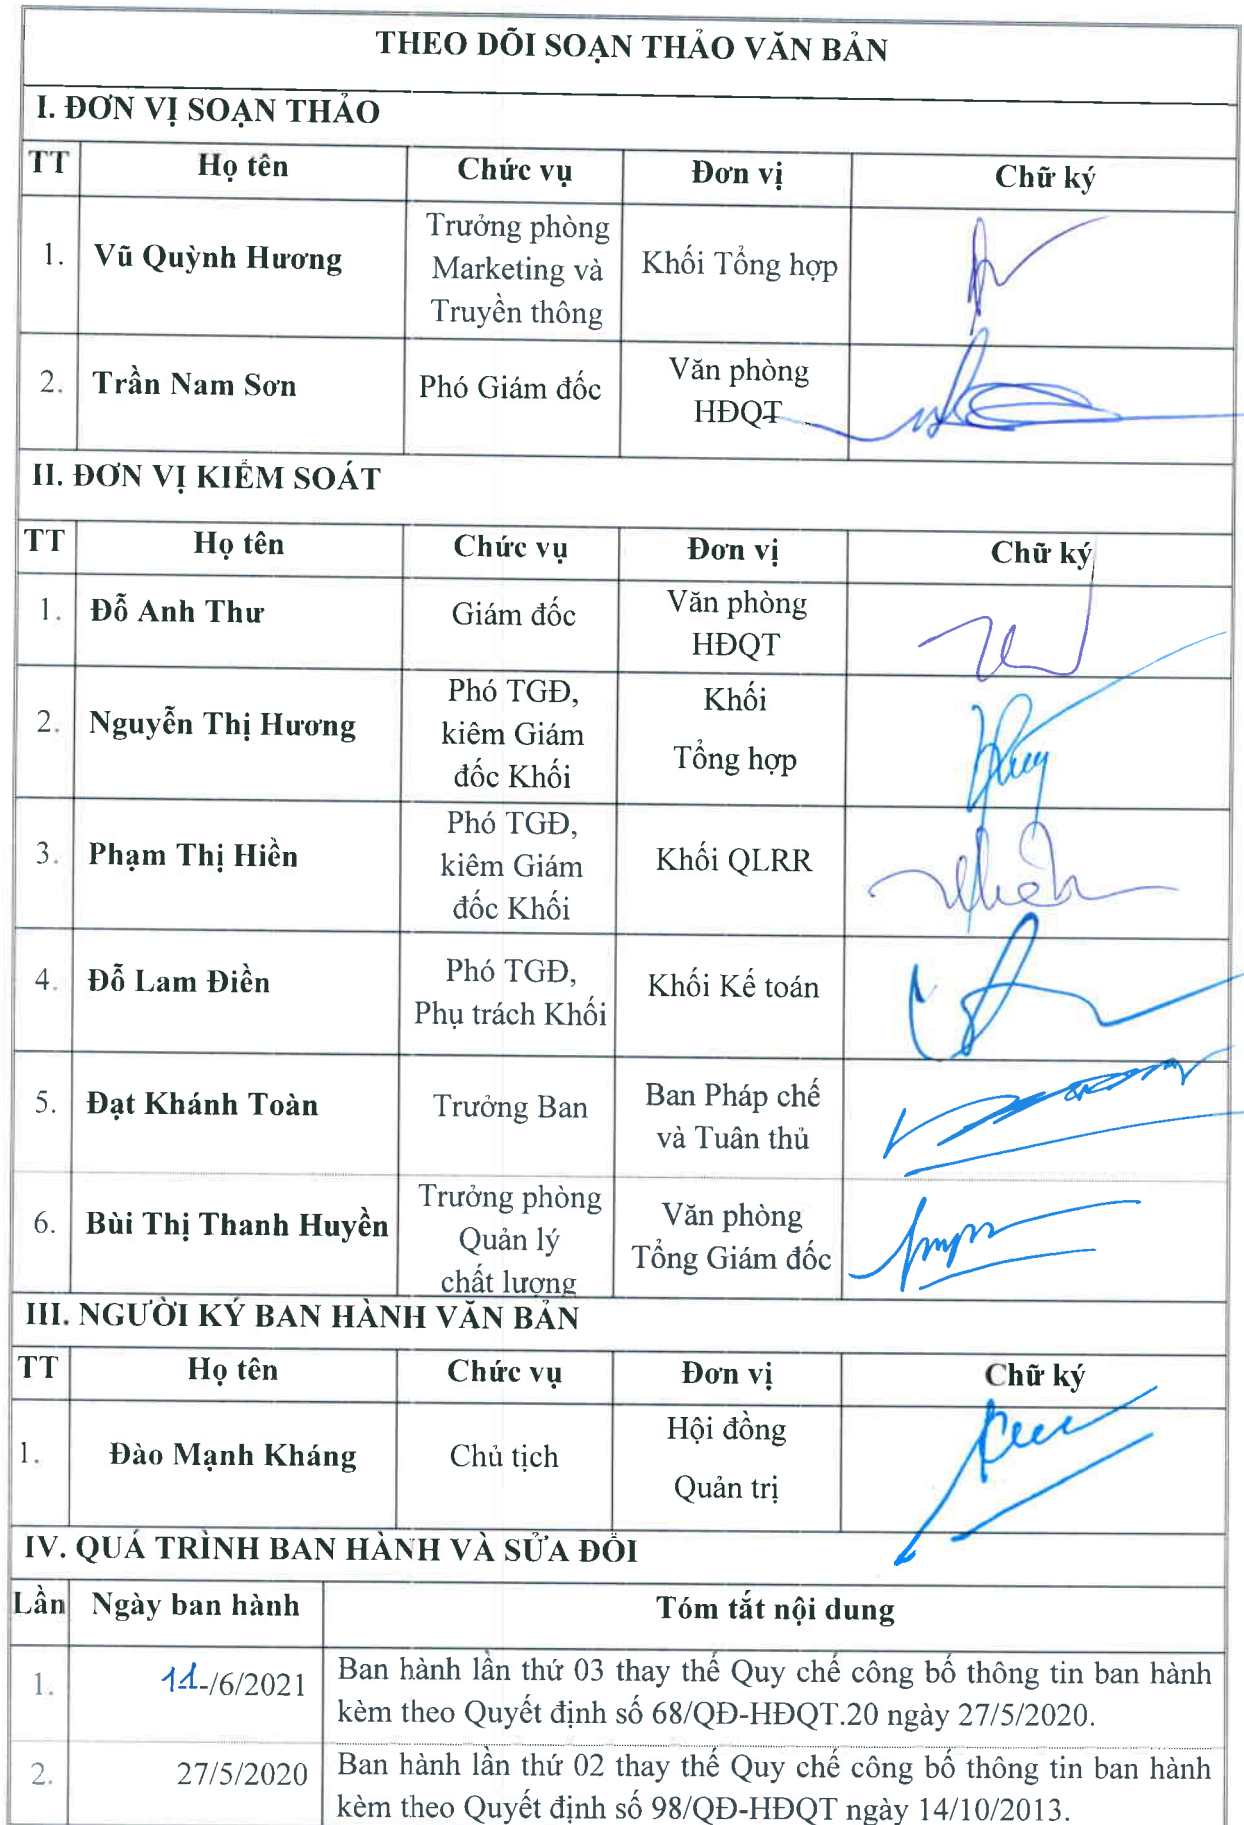 THEO DÕI SOẠN THẢO VĂN BẢN
I. ĐƠN VỊ SOẠN THẢO
TT Họ tên Chức vụ Đơn vị Chữ ký
1. Vũ Quỳnh Hương Trưởng phòng Marketing và Truyền thông Khối Tổng hợp
2. Trần Nam Sơn Phó Giám đốc Văn phòng HĐQT
II. ĐƠN VỊ KIỂM SOÁT
TT Họ tên Chức vụ Đơn vị Chữ ký
1. Đỗ Anh Thư Giám đốc Văn phòng HĐQT
2. Nguyễn Thị Hương Phó TGĐ, kiêm Giám đốc Khối Khối Tổng hợp
3. Phạm Thị Hiền Phó TGĐ, kiêm Giám đốc Khối Khối QLRR
4. Đỗ Lam Điền Phó TGĐ, Phụ trách Khối Khối Kế toán
5. Đạt Khánh Toàn Trưởng Ban Ban Pháp chế và Tuân thủ
6. Bùi Thị Thanh Huyền Trưởng phòng Quản lý chất lượng Văn phòng Tổng Giám đốc
III. NGƯỜI KÝ BAN HÀNH VĂN BẢN
TT Họ tên Chức vụ Đơn vị Chữ ký
1. Đào Mạnh Kháng Chủ tịch Hội đồng Quản trị
IV. QUÁ TRÌNH BAN HÀNH VÀ SỬA ĐỔI
Lần Ngày ban hành Tóm tắt nội dung
1. 11/6/2021 Ban hành lần thứ 03 thay thế Quy chế công bố thông tin ban hành
kèm theo Quyết định số 68/QĐ-HĐQT.20 ngày 27/5/2020.
2. 27/5/2020 Ban hành lần thứ 02 thay thế Quy chế công bố thông tin ban hành
kèm theo Quyết định số 98/QĐ-HĐQT ngày 14/10/2013.